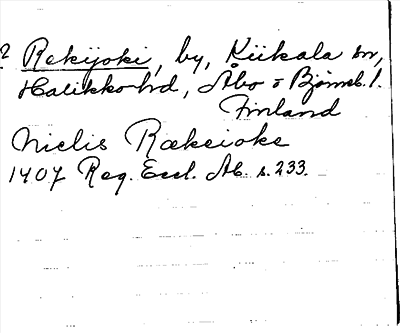 Rekijoki, by, Kiikala sn,
Halikko hd, Åbo o Björneb. l.
Finland
Niclis Rækeioke
1407 Reg. Eccl. Ab. s. 233.